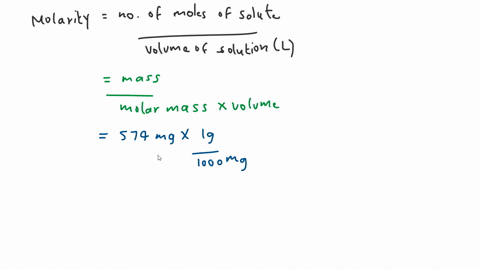 Molarity = no. of moles of solute
volume of solution (L)
= mass
molar mass x volume
= 574 mg x 1g
1000 mg